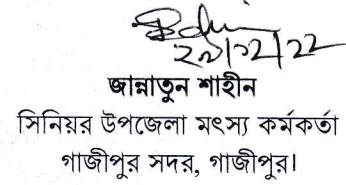 ২০/১২/২২
জান্নাতুন শাহীন
সিনিয়র উপজেলা মৎস্য কর্মকর্তা
গাজীপুর সদর, গাজীপুর।